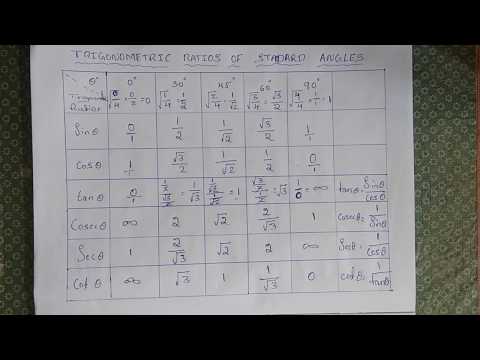 TRIGONOMETRIC RATIOS OF STADARD ANGLES
θ° 0° 30° 45° 60° 90°
Ratios √0/4 = 0/2 = 0 √1/4 = 1/2 √2/4 = 1/√2 √3/4 = √3/2 √4/4 = 1/1 = 1
Sinθ 0/1 1/2 1/√2 √3/2 1/1
Cosθ 1/1 √3/2 1/√2 1/2 0/1
tanθ 0/1 1/2/√3/2 = 1/√3 1/√2/1/√2 = 1 √3/2/1/2 = √3 1/0 = ∞ tanθ = Sinθ/Cosθ
Cosecθ ∞ 2 √2 2/√3 1 Cosecθ = 1/Sinθ
Secθ 1 2/√3 √2 2 ∞ Secθ = 1/Cosθ
Cotθ ∞ √3 1 1/√3 0 Cotθ = 1/tanθ